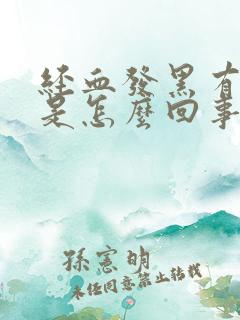 經血發黑有
是怎麼回事
孫憲明
未经同意禁止转载